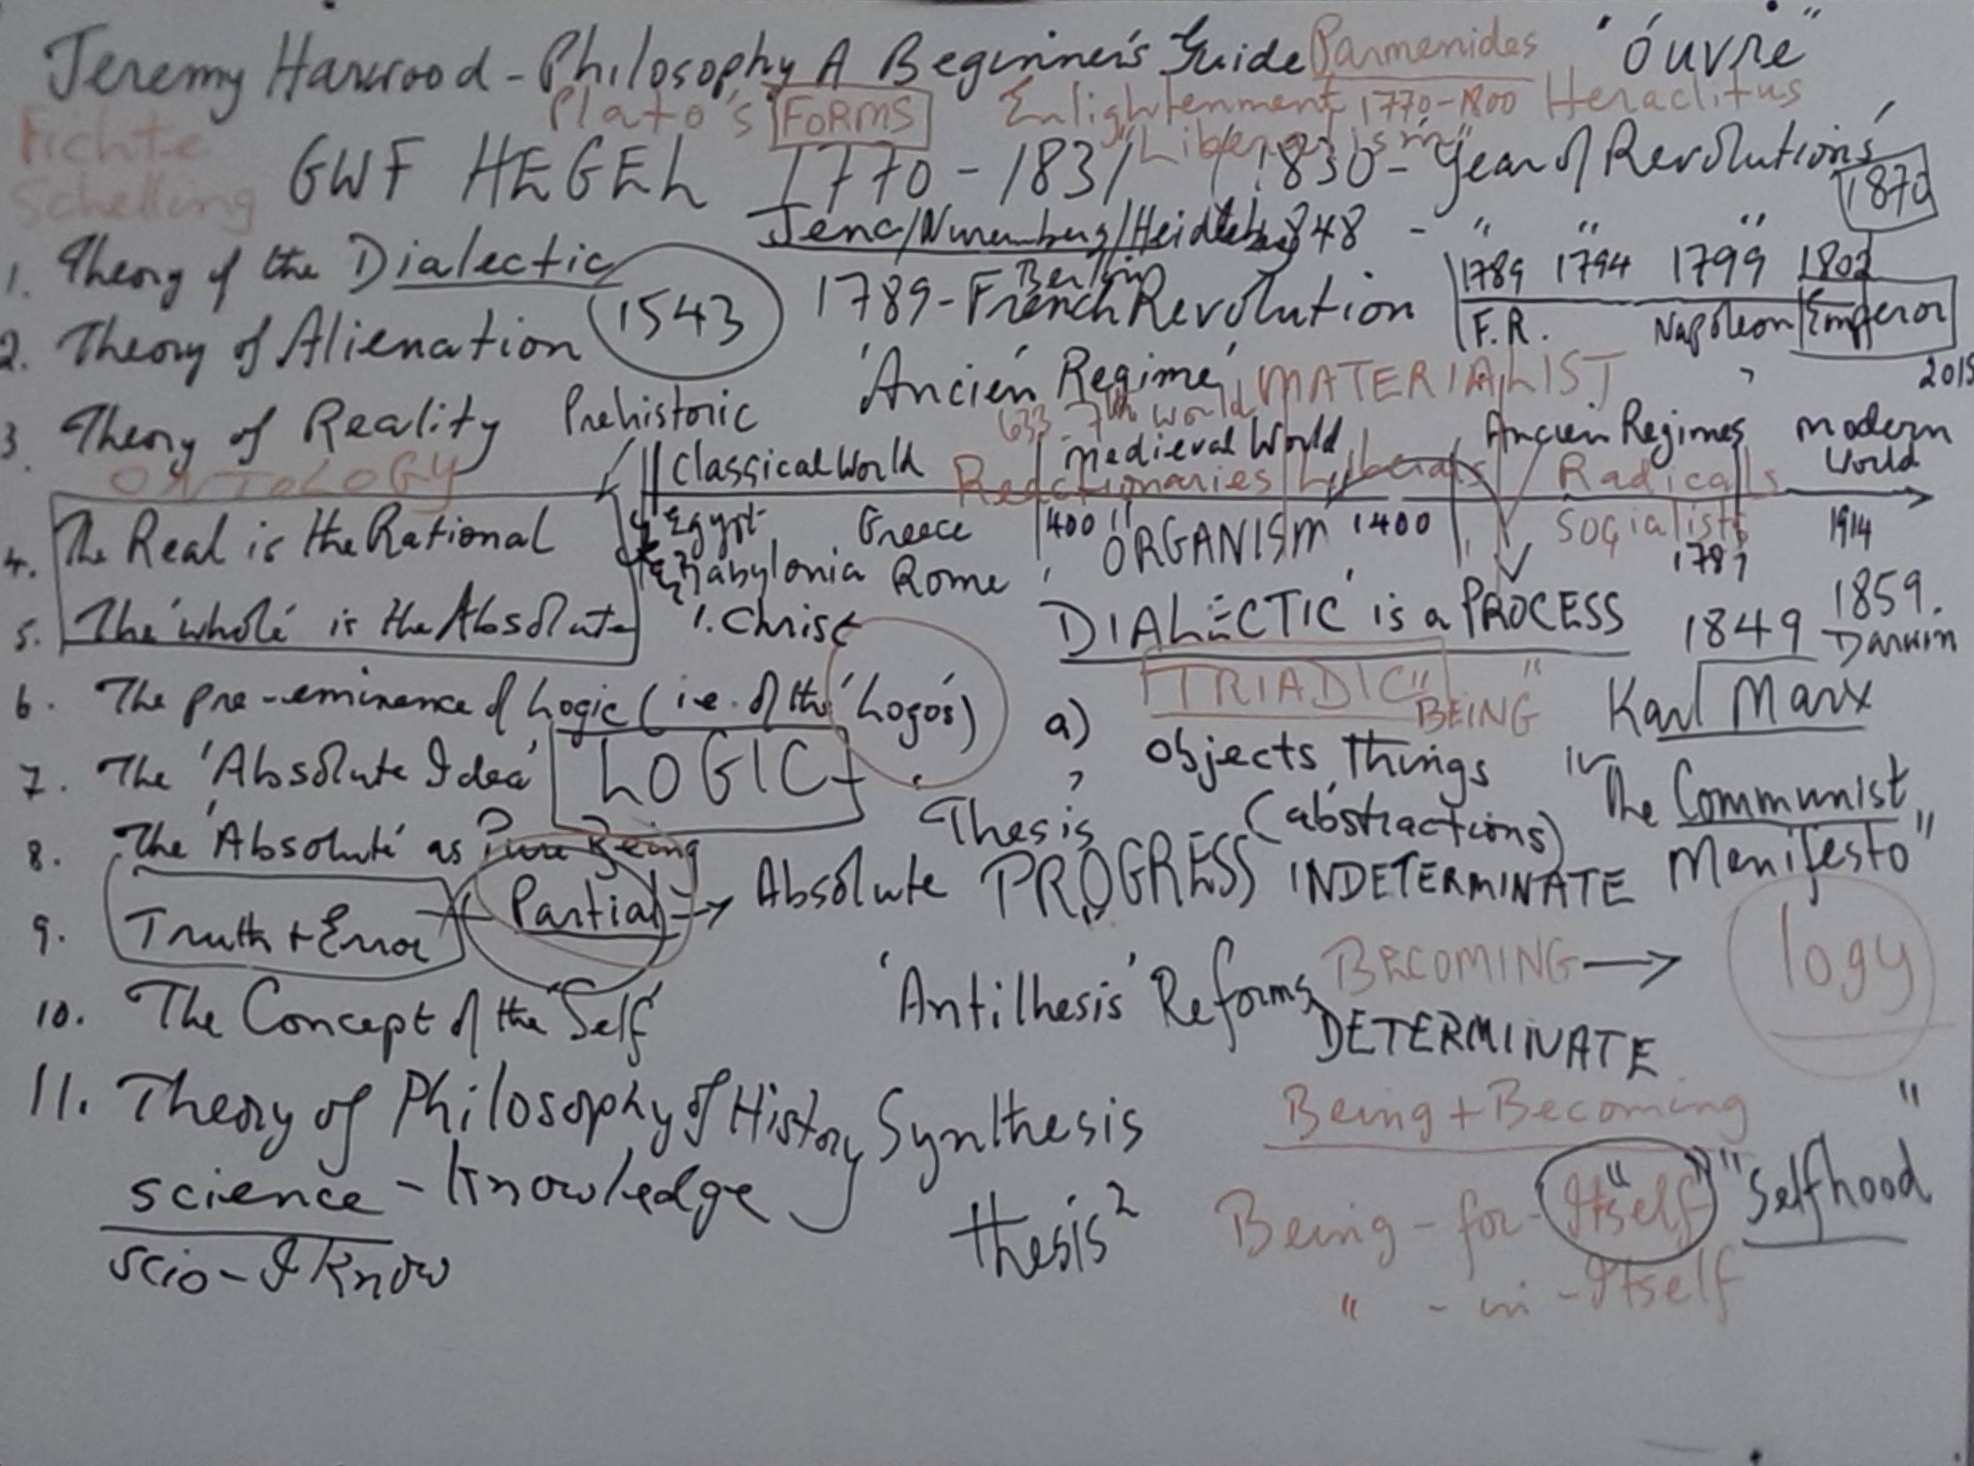 Jeremy Harwood - Philosophy A Beginner's Guide Parmenides "óuvre"
Plato's FORMS Enlightenment 1770-1800 Heraclitus
"Liberalism"
Fichte
Schelling
GWF HEGEL 1770 - 1831 / 1830 - 'Year of Revolutions'
1870
Jena/Nuremberg/Heidleberg 1848 - " " "
Berlin
1. Theory of the Dialectic
1543
1789 - French Revolution
1789 1794 1799 1802
F.R. Napoleon Emperor
2. Theory of Alienation
'Ancien Regime' MATERIALIST
2015
3. Theory of Reality
ONTOLOGY
Prehistoric
633 - 7th World
Classical World Medieval World Ancien Regimes Modern World
Reactionaries Liberals Radicals
Egypt Greece 400 ORGANISM 1400 Socialists 1789 1914
Babylonia Rome
4. The Real is the Rational
5. The 'whole' is the Absolute
1. Christ
'DIALECTIC' is a PROCESS
1849 1859. Darwin
TRIADIC "BEING"
6. The pre-eminence of Logic (i.e. of the 'Logos')
a) objects, things
Karl Marx
7. The 'Absolute Idea' LOGIC
'Thesis' (abstractions)
in The Communist
Manifesto"
8. The 'Absolute' as Pure Being
9. Truth + Error Partial → Absolute PROGRESS INDETERMINATE
logy
'Antilhesis' Reforms BECOMING →
DETERMINATE
10. The Concept of the 'Self'
11. Theory of Philosophy of History
Synthesis
Being + Becoming
science - knowledge
thesis²
Being - for - "Itself" "Selfhood"
scio - I know
" - in - Itself